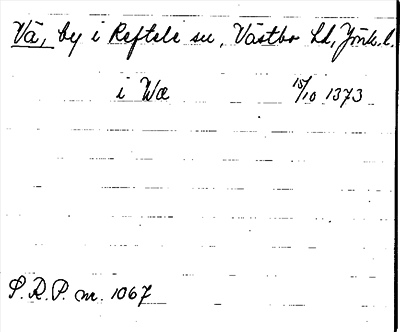 Vä, by i Reftele sn, Västbo hd, Jönk. l.
i Wæ 15/10 1373
S.R.P. nr. 1067